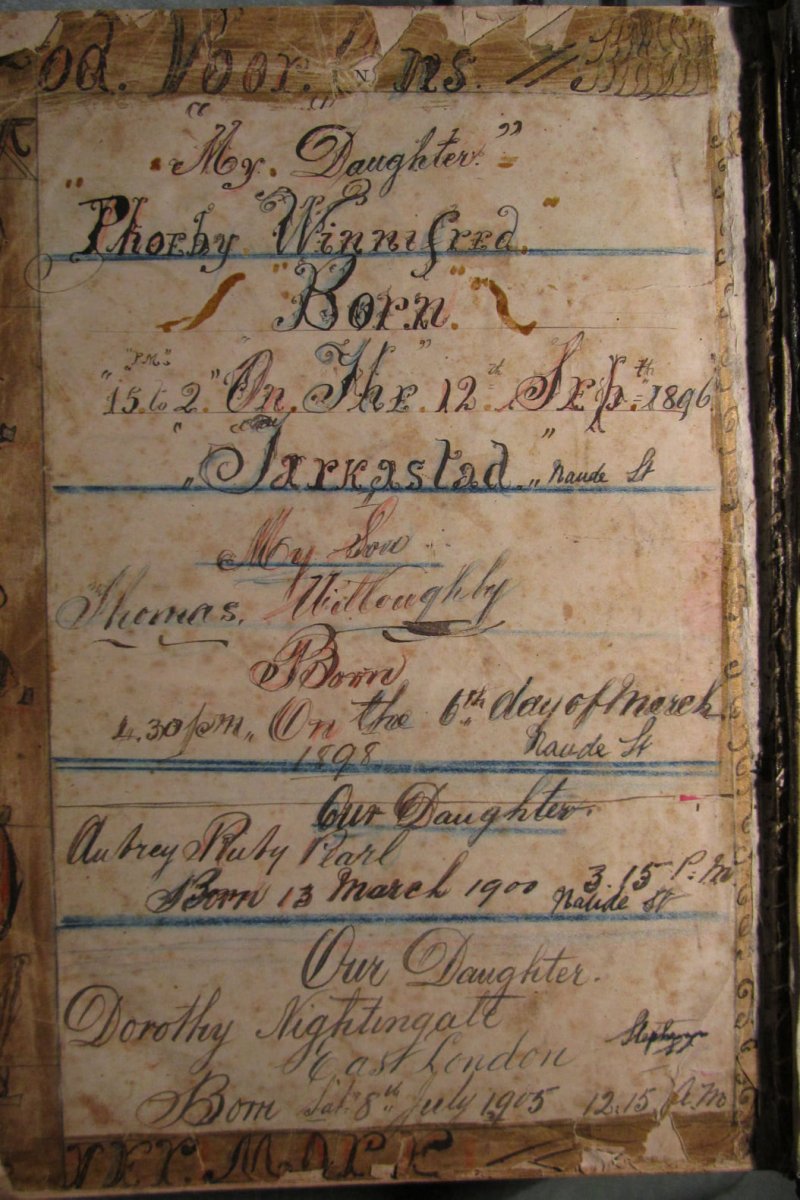 od. Voor. Ons.
"My. Daughter."
"Phoeby Winnifred."
"Born."
"P.M."
"15. to 2." "On. The." 12th Sep.th 1896
"Tarkastad." Naude St
My Son
Thomas. Willoughby
Born
4.30 pm. On the 6th day of March
1898 Naude St
Our Daughter.
Aubrey Ruby Pearl
Born 13 March 1900 3.15 P.M
Naude St
Our Daughter.
Dorothy Nightingale
East London
Born Sat. 8th July 1905 12.15. A.M
VER. M.